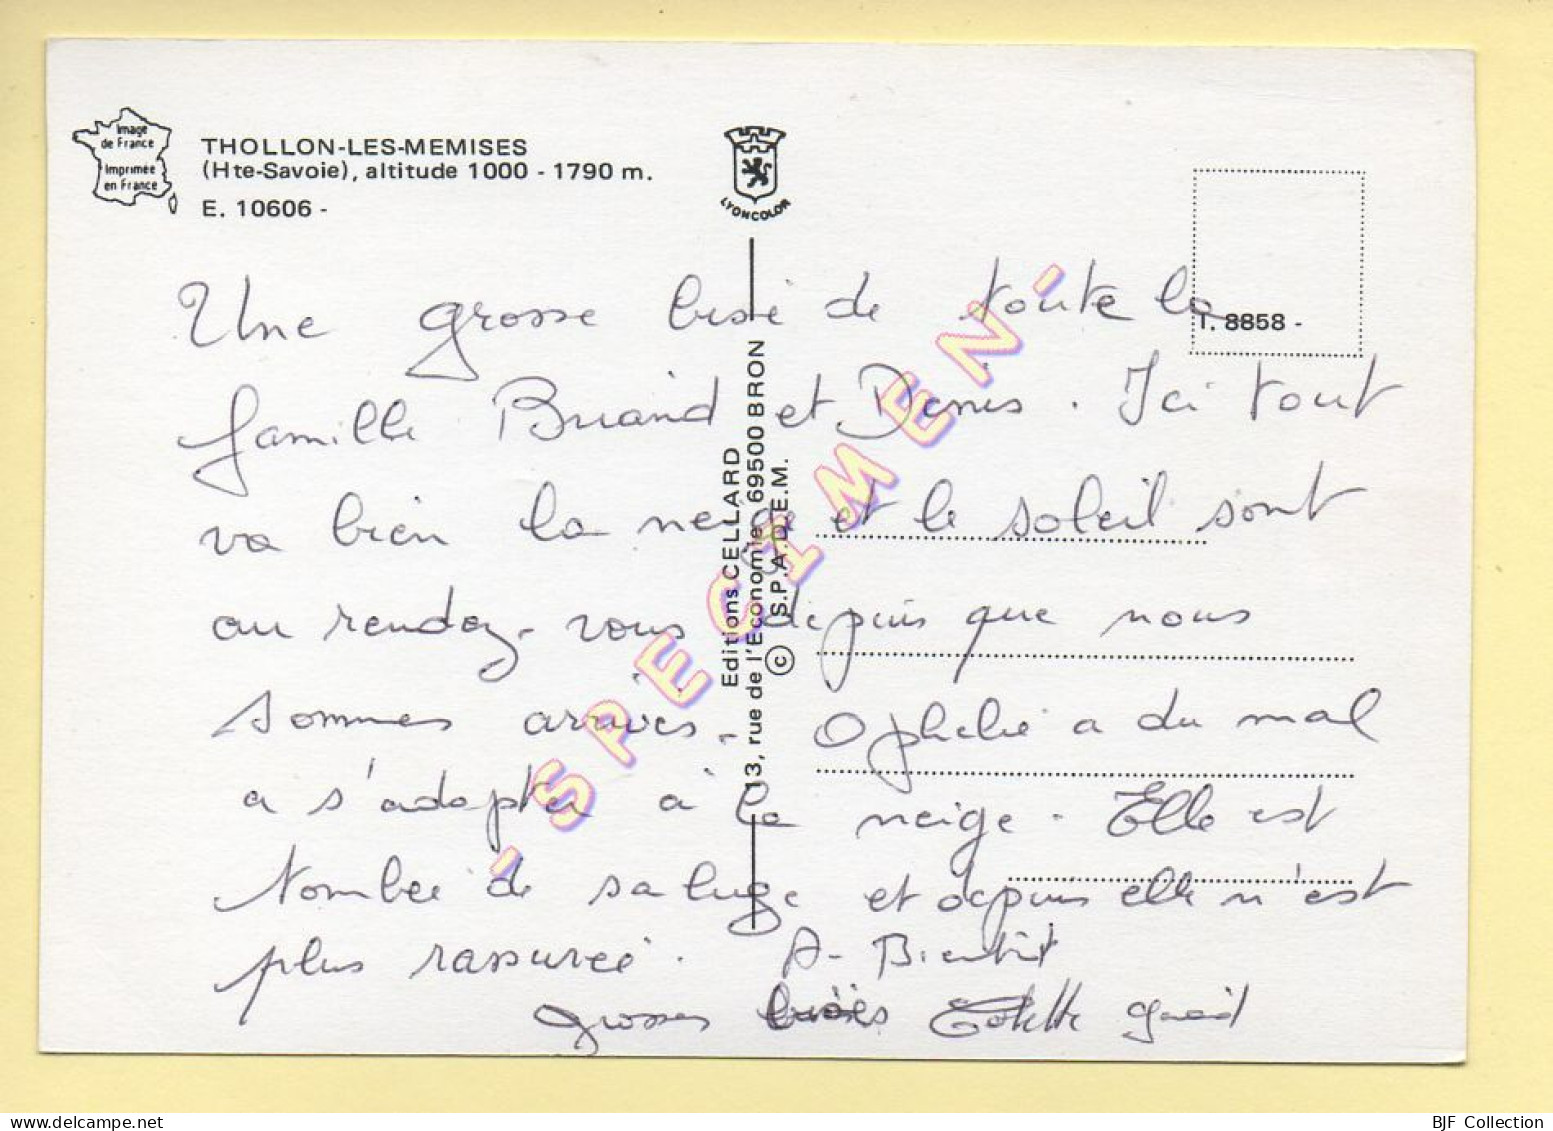 Image
de France
Imprimée
en France
THOLLON-LES-MEMISES
(Hte-Savoie), altitude 1000 - 1790 m.
E. 10606 -
LYONCOLOR
I. 8858 -
Une grosse bise de toute la
famille Briand et Denis. Ici tout
va bien la neige et le soleil sont
au rendez-vous depuis que nous
sommes arrivés. Ophélie a du mal
a s'adapter à la neige. Elle est
tombée de sa luge et depuis elle n'est
plus rassurée. A-Bientôt
grosses bises Colette
Editions CELLARD
13, rue de l'Economie, 69500 BRON
© S.P.A.D.E.M.
- SPECIMEN -
BJF Collection